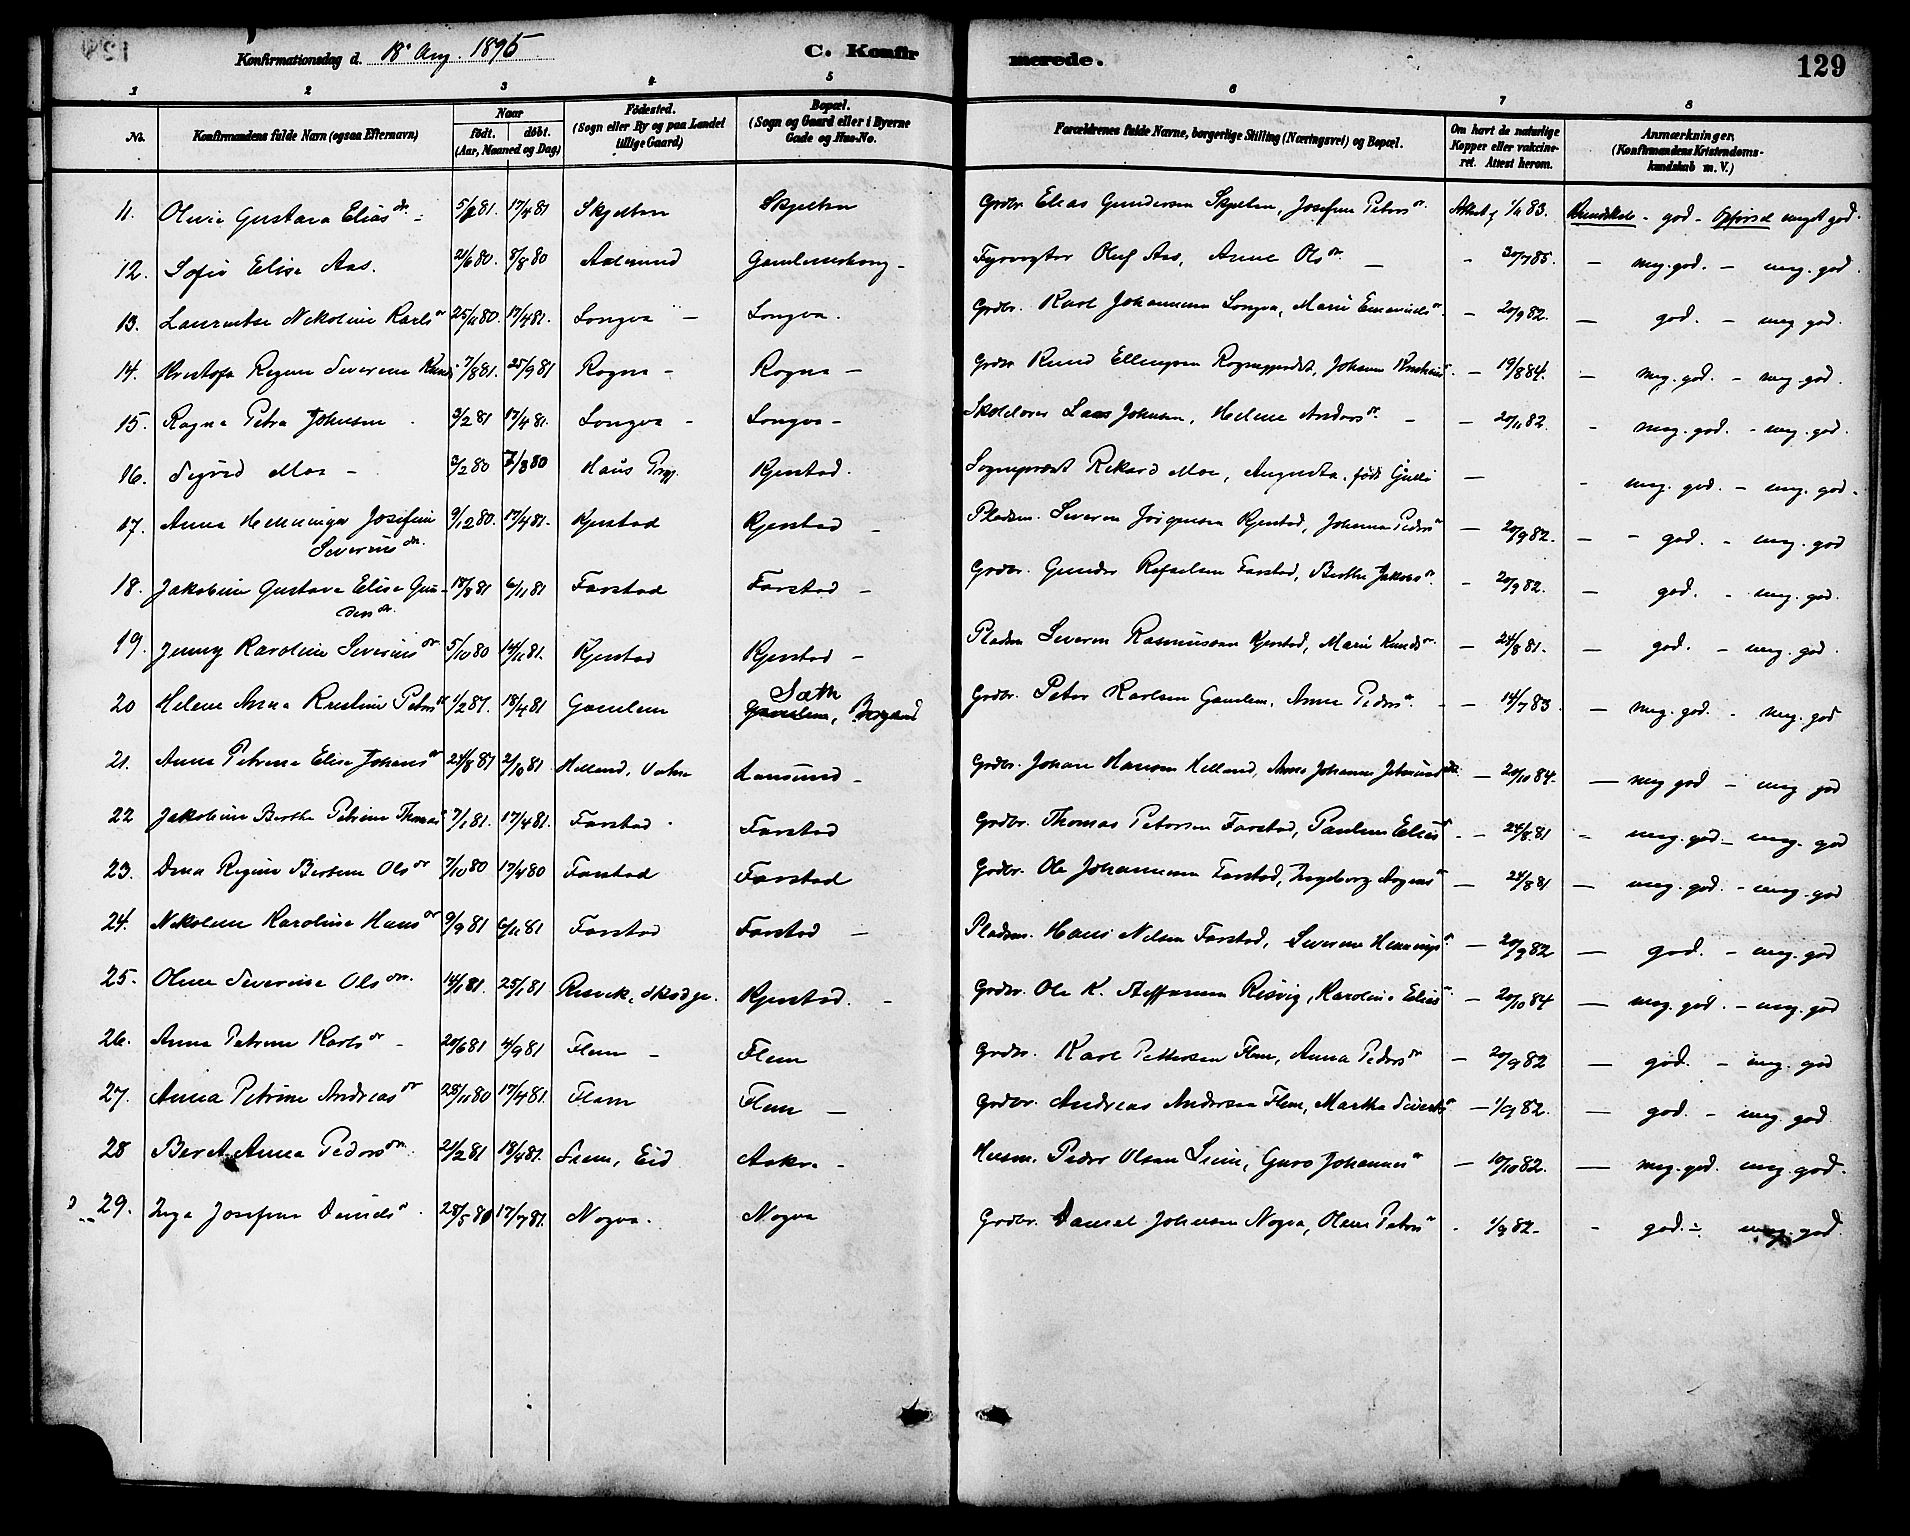 Konfirmationsdag d. 18' Aug. 1895 C. Konfirmerede. 129
1 2 3 4 5 6 7 8
No. Konfirmandens fulde Navn (ogsaa Efternavn) Naar født. døbt. (Aar, Maaned og Dag) Fødested. (Sogn eller By og paa Landet tillige Gaard) Bopæl. (Sogn og Gaard eller i Byerne Gade og Hus-No. Forældrenes fulde Navne, borgerlige Stilling (Næringsvei) og Bopæl. Om havt de naturlige Kopper eller vaccineret. Attest herom. Anmærkninger. (Konfirmandens Kristendomskundskab m. V.)
11. Olivie Gustava Elias dr. 5/2 81. 17/4 81 Skjelten Skjelten Grdbr. Elias Gundersen Skjelten, Josefine Peters dr. Attest f 1/11 83. Kundskab - god - Opførsel meget god.
12. Sofie Elise Aas. 21/6 80. 8/8 80 Aalesund Gamlemshaug - Fyrvogter Oluf Aas, Anne Ols dr. - 30/7 85. - meg. god. - meg. god.
13. Laurentse Nikoline Karls dr 25/11 80. 17/4 81. Longva - Longva. Grdbr. Karl Johannesen Longva, Marie Emanuels dr. - 20/9 82. - god. - meg god.
14. Kristofa Regine Severine Knuds 7/8 81. 25/9 81 Rogne - Rogne - Grdbr Knud Ellingsen Rognegjerdet, Johanne - 19/8 84. - meg. god. - meg god.
15. Ragna Petra Johnsen. 3/2 81 17/4 81. Longva - Longva - Skolelærer Lars Johnsen, Helene Anders dr. - - 20/11 82. - meg. god. - meg. god.
16. Sigrid Moe - 3/2 80 7/3 80 Haus Prgj. Kjerstad. Sogneprest Rikard Moe, Augusta, født - - meg. god. - meg. god.
17. Anna Henninga Josefine Severins dr. 9/12 80. 17/4 81. Kjerstad Kjerstad - Pladsm. Severin Jørgensen Kjerstad, Johanna Peders dr - 20/9 82. - - god. - meg. god
18. Jakobine Gustava Elise Gunders dr. 18/8 81 6/11 81 Farstad Farstad - Grdbr. Gunder Rafaelsen Farstad, Berthe Jakobs dr. - 20/9 82. - god. - meg. god.
19. Jenny Karoline Severins dr 5/10 80 14/11 81. Kjerstad Kjerstad - Pladsm Severin Rasmussen Kjerstad, Marie Knuds dr. - 24/8 81. - god. - meg. god.
20 Helene Anna Kristine Peters dr 1/2 81. 18/4 81 Gamlem Sæth Gamlem, Borgund Grdbr. Peter Karlsen Gamlem, Anne Peders dr. - - 14/7 83 - meg. god. - meg. god
21. Anna Petrine Elise Johans dr 24/8 81 2/10 81 Helland, Vatne Lansund - Grdbr. Johan Hansen Helland, Anne Johanne dr. - 20/10 84. - meg god - meg god
22 Jakobine Berthe Petrine Thomas 7/1 81. 17/4 81. Farstad. Farstad Grdbr. Thomas Petersen Farstad, Pauline Elias dr - 24/8.81 - meg. god - meg. god
23. Dina Regine Bertine Ols dr 7/10 80 17/4 80 Farstad Farstad Grdbr. Ole Johannesen Farstad, Ingeborg dr - 24/8 81 - meg. god. - meg. god
24. Nikoline Karoline Hans dr 9/9 81 6/11 81 Farstad Farstad - Pladsm. Hans Nilsen Farstad, Severine Hennings dr. - 20/9 82 - god. - meg. god
25. Oline Severine Ols dr. 14/1 81. 23/1 81 Resvik, Skodje. Kjerstad. - Grdbr. Ole K. Steffensen Risvig, Karoline Elias dr. - 20/10 84 - meg. god. - meg. god
26. Anna Petrine Karls dr - 20/6 81 4/9 81 Flem - Flem Grdbr. Karl Pettersen Flem, Anna Peders dr - 20/9 82 - god. - meg. god
27. Anna Petrine Andreas dr 28/11 80 17/4 81. Flem Flem - Grdbr. Andreas Andersen Flem, Martha Siverts dr - 1/9 82. - god. - meg. god.
28 Beret Anna Peders dr. 21/2 81 18/4 81. Leem, Eid Aakre - Husm. Peder Olsen Leim, Guro Johannes dr - 10/10 82. - meg. god. meg. god.
29. Inga Josefine Daniels dr. 28/5 80 17/7 81. Nogva. Nogva Grdbr. Daniel Johnsen Nogva, Oline Peters dr. - 1/9 82. - god. - meg. god.